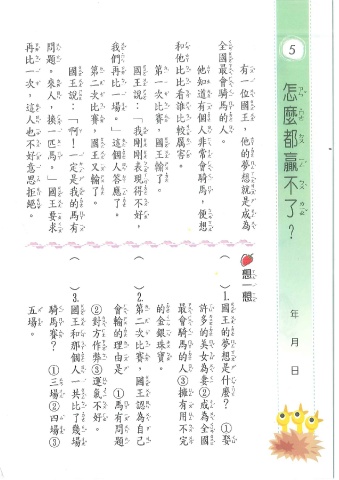 5
怎麼都贏不了?
年 月 日
有一位國王,他的夢想就是成為
全國最會騎馬的人。
他知道有個人非常會騎馬,便想
和他比比看誰比較厲害。
第一次比賽,國王輸了。
國王說:「我剛剛表現得不好,
我們再比一場。」這個人答應了。
第二次比賽,國王又輸了。
國王說:「啊!一定是我的馬有
問題。來人,換一匹馬。」國王要求
再比一次,這人也不好意思拒絕。
想一想
( )1.國王的夢想是什麼? ①娶
許多的美女為妻②成為全國
最會騎馬的人③擁有用不完
的金銀珠寶。
( )2.第二次比賽,國王認為自己
會輸的理由是 ①馬有問題
②對方作弊③運氣不好。
( )3.國王和那個人一共比了幾場
騎馬賽? ①三場②四場③
五場。